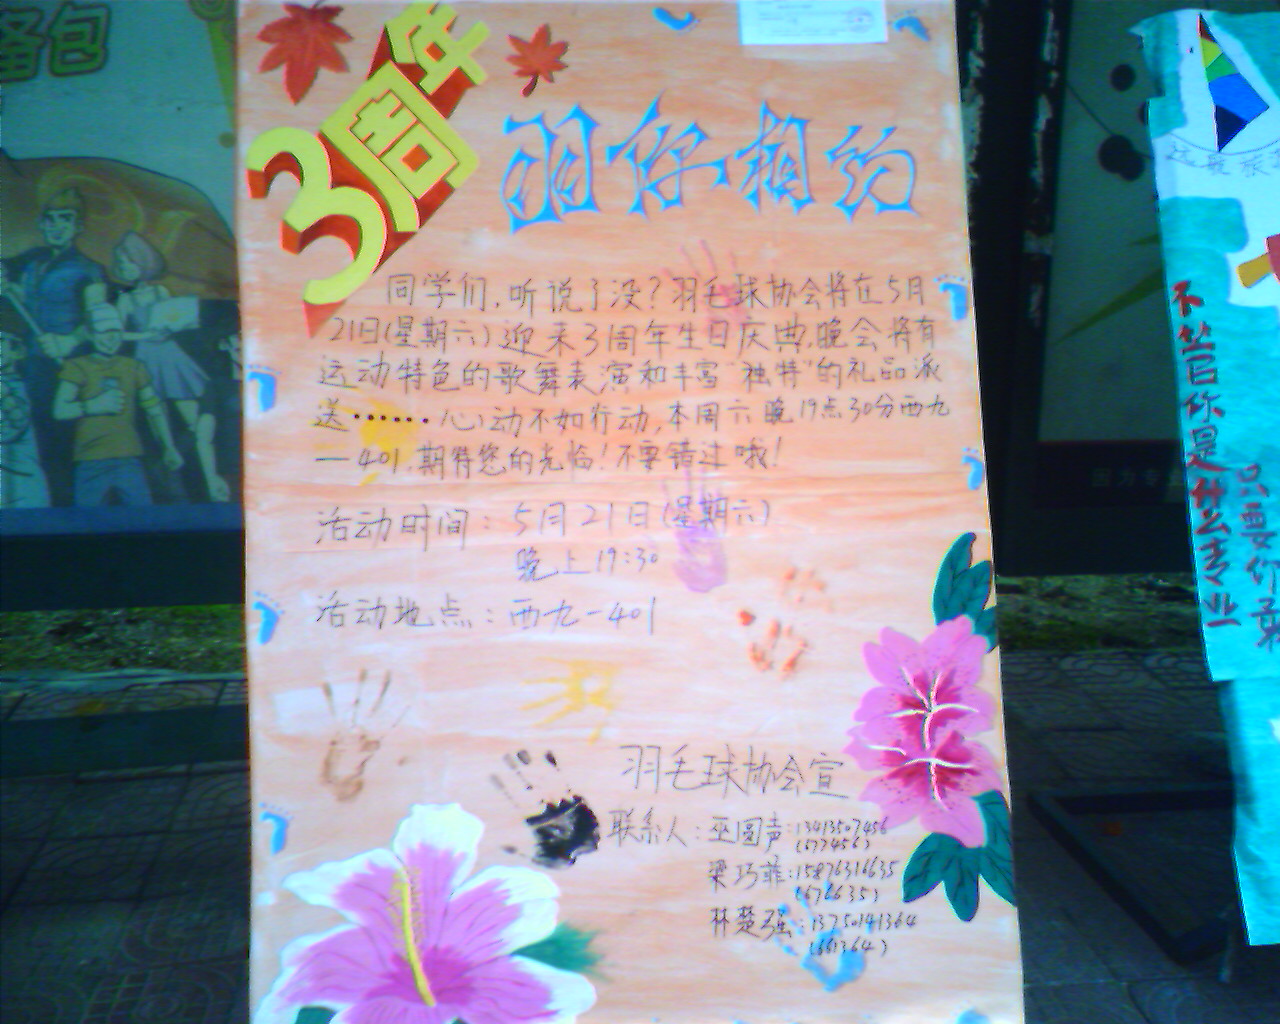 备包
3周年
羽你相约
同学们,听说了没?羽毛球协会将在5月
21日(星期六)迎来3周年生日庆典,晚会将有
运动特色的歌舞表演和丰富"独特"的礼品派
送……心动不如行动,本周六晚19点30分西九
一401,期待您的光临!不要错过哦!
活动时间:5月21日(星期六)
晚上19:30
活动地点:西九一401
羽毛球协会宣
联系人:巫圆声:13413507456
(677456)
梁巧菲:15876316635
(676635)
林楚强:13750141364
(661364)
不管你是什么专业
只要你
因为专